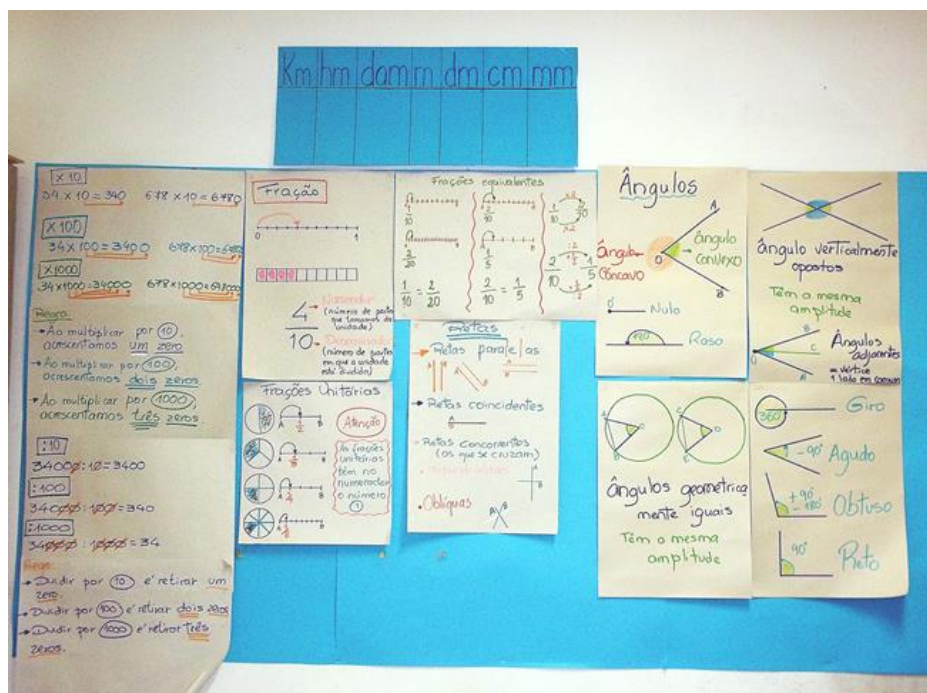 Km hm dam m dm cm mm
x 10
34 x 10 = 340 678 x 10 = 6780
x 100
34 x 100 = 3400 678 x 100 =
x 1000
34 x 1000 = 34000 678 x 1000 = 678000
Regra
→ Ao multiplicar por 10,
acrescentamos um zero.
→ Ao multiplicar por 100,
acrescentamos dois zeros.
→ Ao multiplicar por 1000,
acrescentamos três zeros.
:10
34000 : 10 = 3400
:100
34000 : 100 = 340
:1000
34000 : 1000 = 34
Regra
→ Dividir por 10 é retirar um
zero.
→ Dividir por 100 é retirar dois zeros
→ Dividir por 1000 é retirar três
zeros.
Fração
0 1
4 → Numerador
(número de partes
que tomamos da
unidade)
10 → Denominador
(número de partes
em que a unidade
está dividida)
Frações Unitárias
A 1/2 B
A B
A 1/4 B
A 1/8 B
Atenção
As frações
unitárias
têm no
numerador
o número
1
Frações equivalentes
1/10
2/20
1/10 = 2/20
2/10
1/5
2/10 = 1/5
x2
1/10 2/20
x2
:2
2/10 1/5
:2
Retas
→ Retas paralelas
→ Retas coincidentes
Retas concorrentes
(as que se cruzam)
• Oblíquas
A B
Ângulos
A
Ângulo Côncavo
O
ângulo convexo
B
Nulo
180° Raso
ângulo verticalmente
opostos
Têm a mesma
amplitude
B
O C
A
Ângulos
adjacentes
= vértice
1 lado em comum
ângulos geometrica
mente iguais
Têm a mesma
amplitude
360° Giro
-90° Agudo
+90° -180° Obtuso
90° Reto